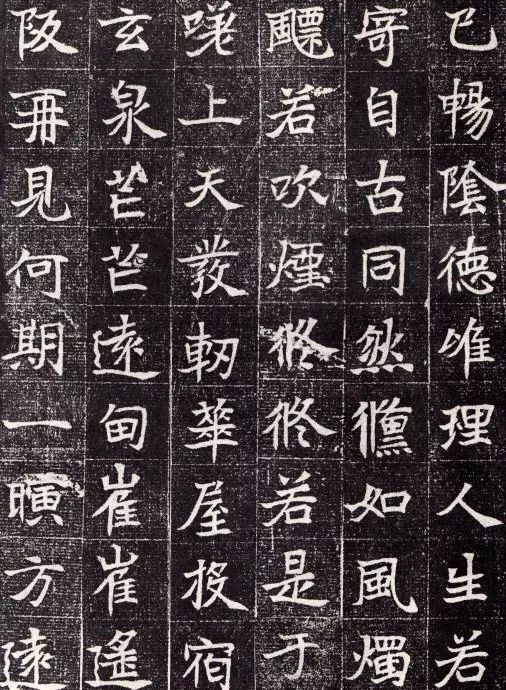 已暢陰德唯理人生若
寄自古同然儵如風燭
飄若吹煙攸攸若是于
嗟上天發軔華屋投宿
玄泉芒芒遠甸崔崔遙
阪再見何期一暝方遠